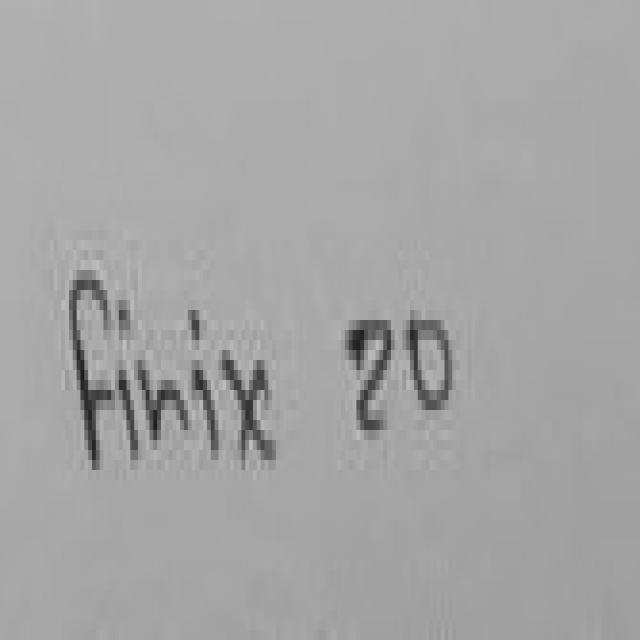 finix 20